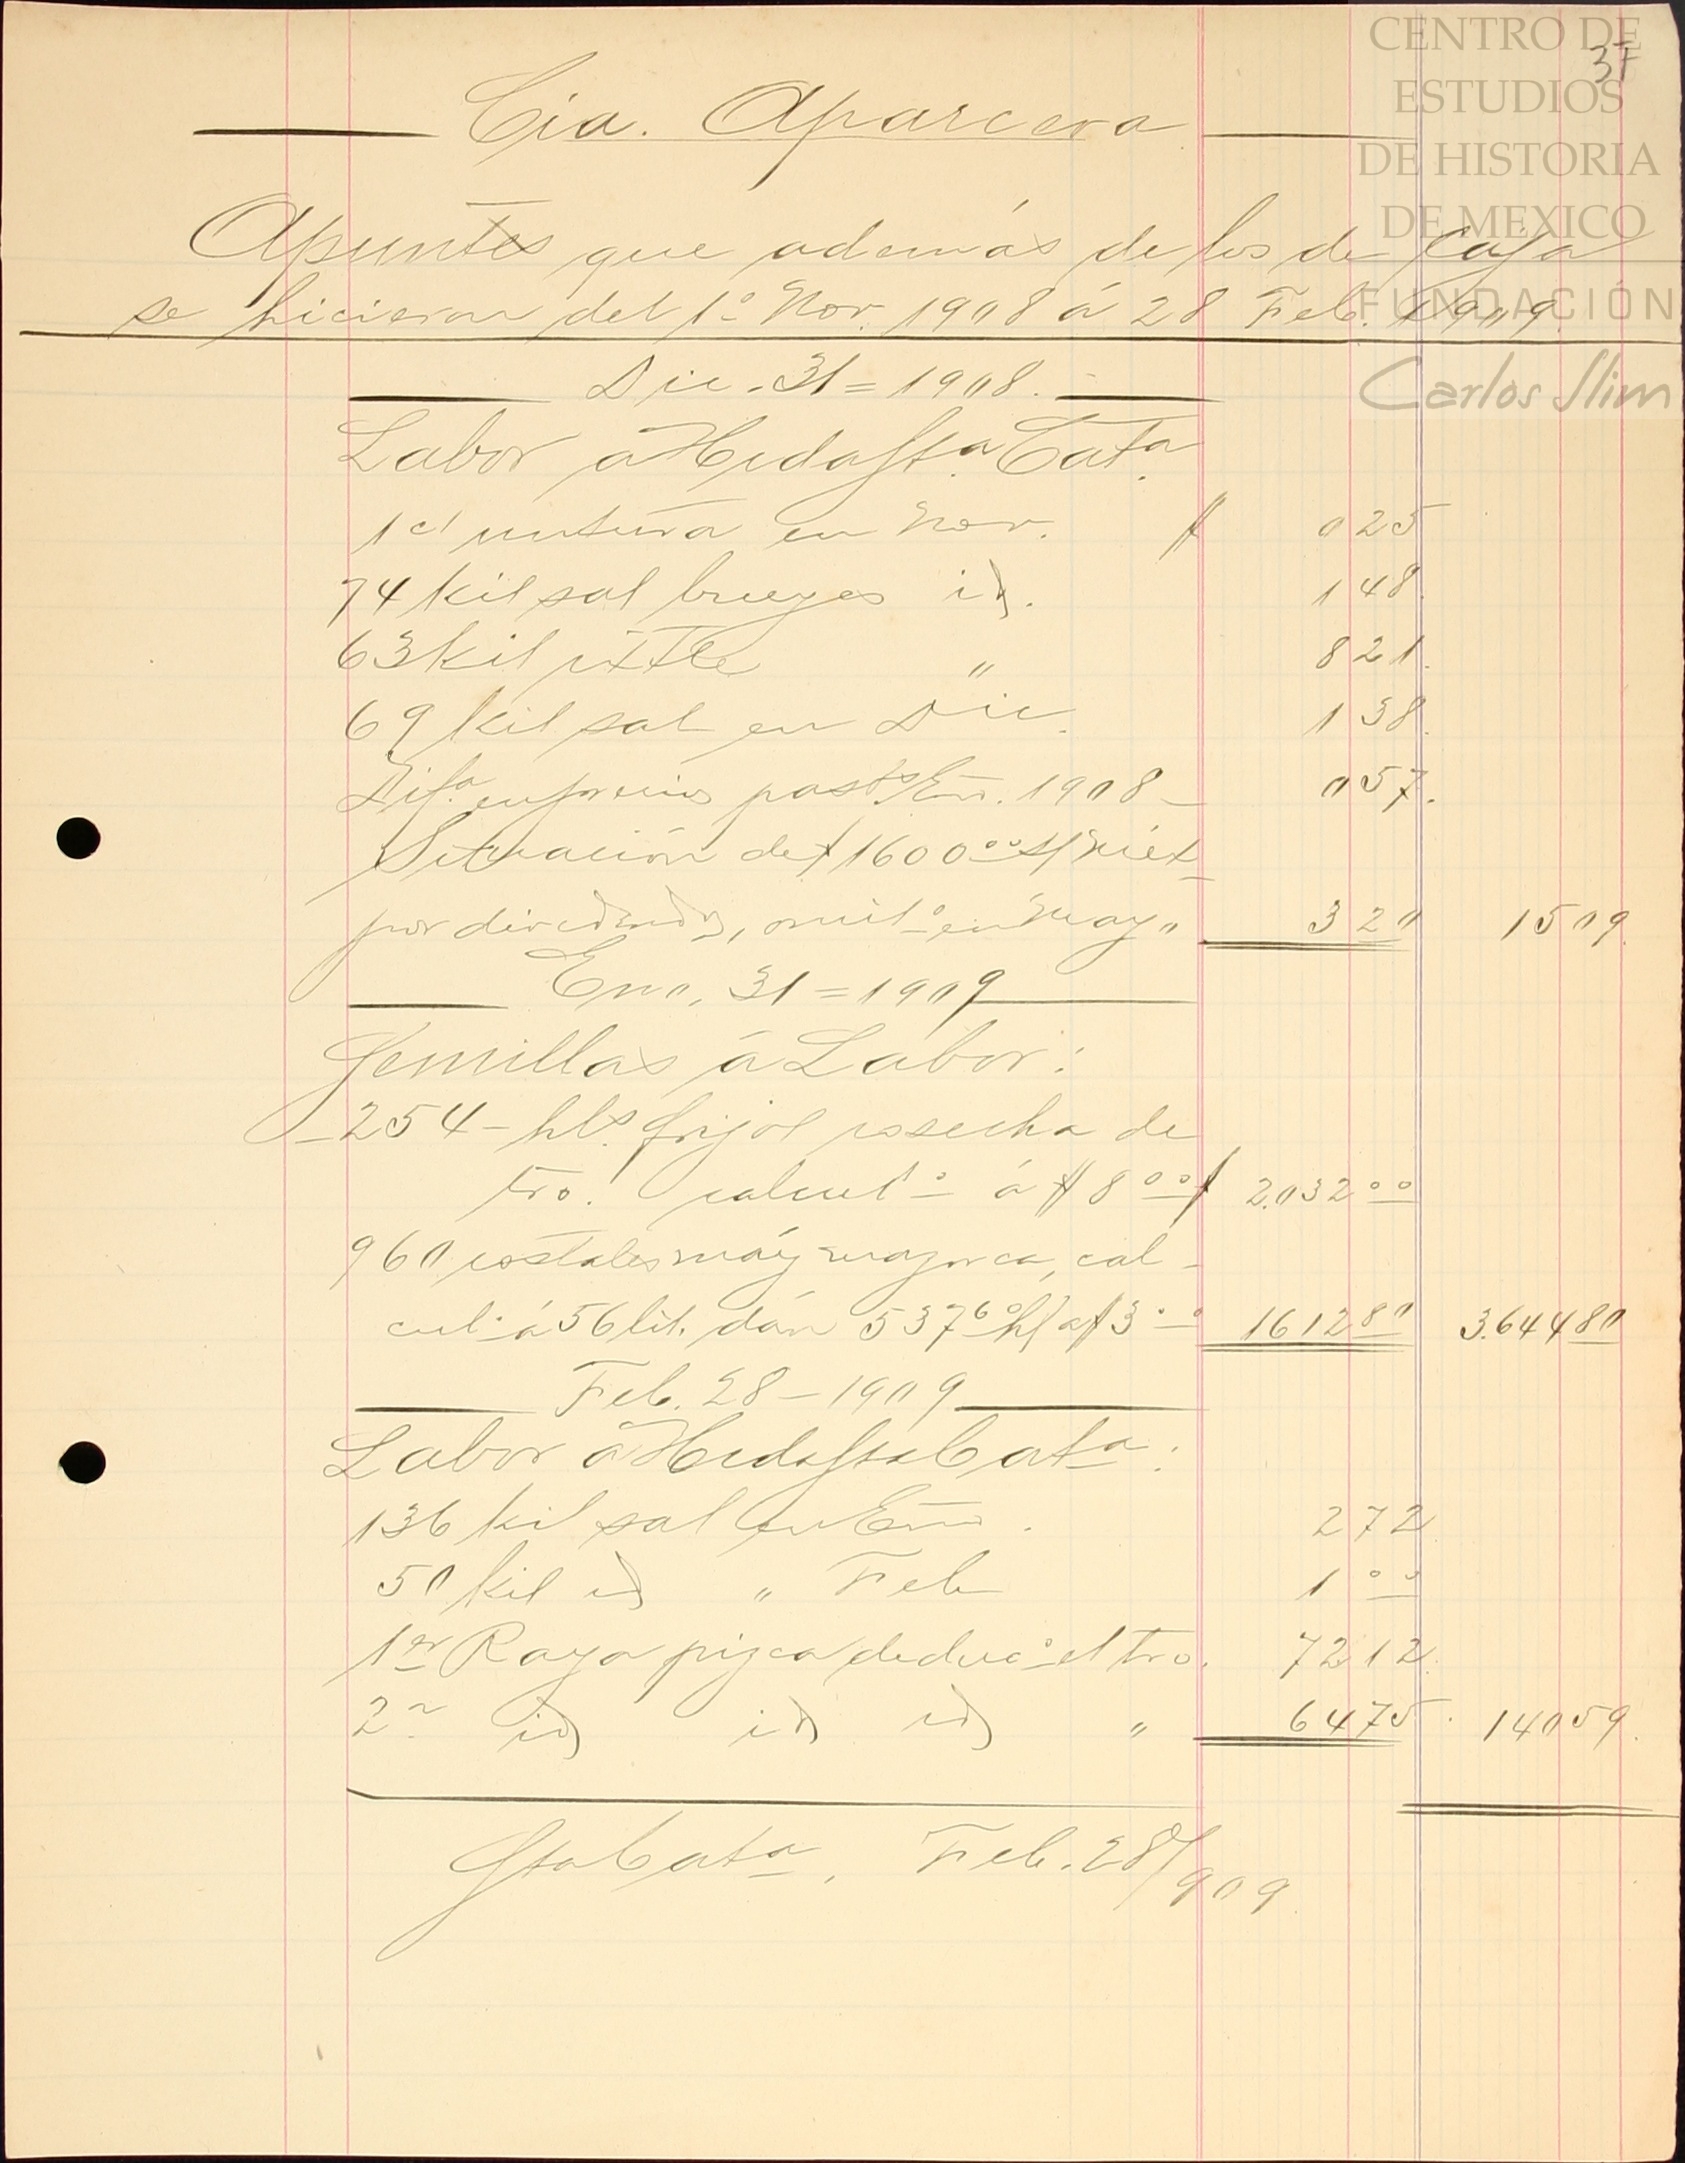 CENTRO DE
ESTUDIOS
DE HISTORIA
DE MEXICO
FUNDACIÓN
Carlos Slim
37
Cia. Aparcera
Apuntes que además de los de Caja
se hicieron del 1º Nov. 1908 á 28 Feb. 1909.
Dic. 31=1908.
Labor á Hcda Sta. Cata.
1 untura en Nov. $ 0 25
74 kil sal bueyes id. 1 48.
63 kil ixtle " 8 21.
69 kil sal en Dic. 1 38.
Difa. en precios pasto Eno. 1908 - 0 57.
Situación de $1600.00 s/ Méx
por dividendo, omito. en Mayo 3 20 15 09.
Eno. 31=1909
Semillas á Labor:
254 - hls. frijol cosecha de
tro. calculº á $8.00 $ 2.032 00
960 costales maíz mazorca, cal-
culº á 56 lit. dán 537.60 hl á $3.00 1612 80 3.644 80
Feb. 28 - 1909
Labor á Hcda Sta Cata:
136 kil sal en Eno. 2 72
50 kil id " Feb 1 00
1er Raya pizca deducº el tro. 72 12.
2a id id id " 64 75. 140 59.
Sta Cata, Feb. 28/909.